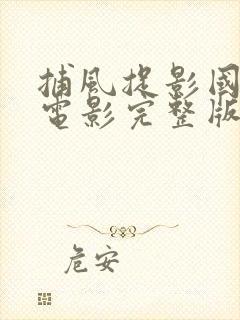 捕风捉影国
电影完整版
危安